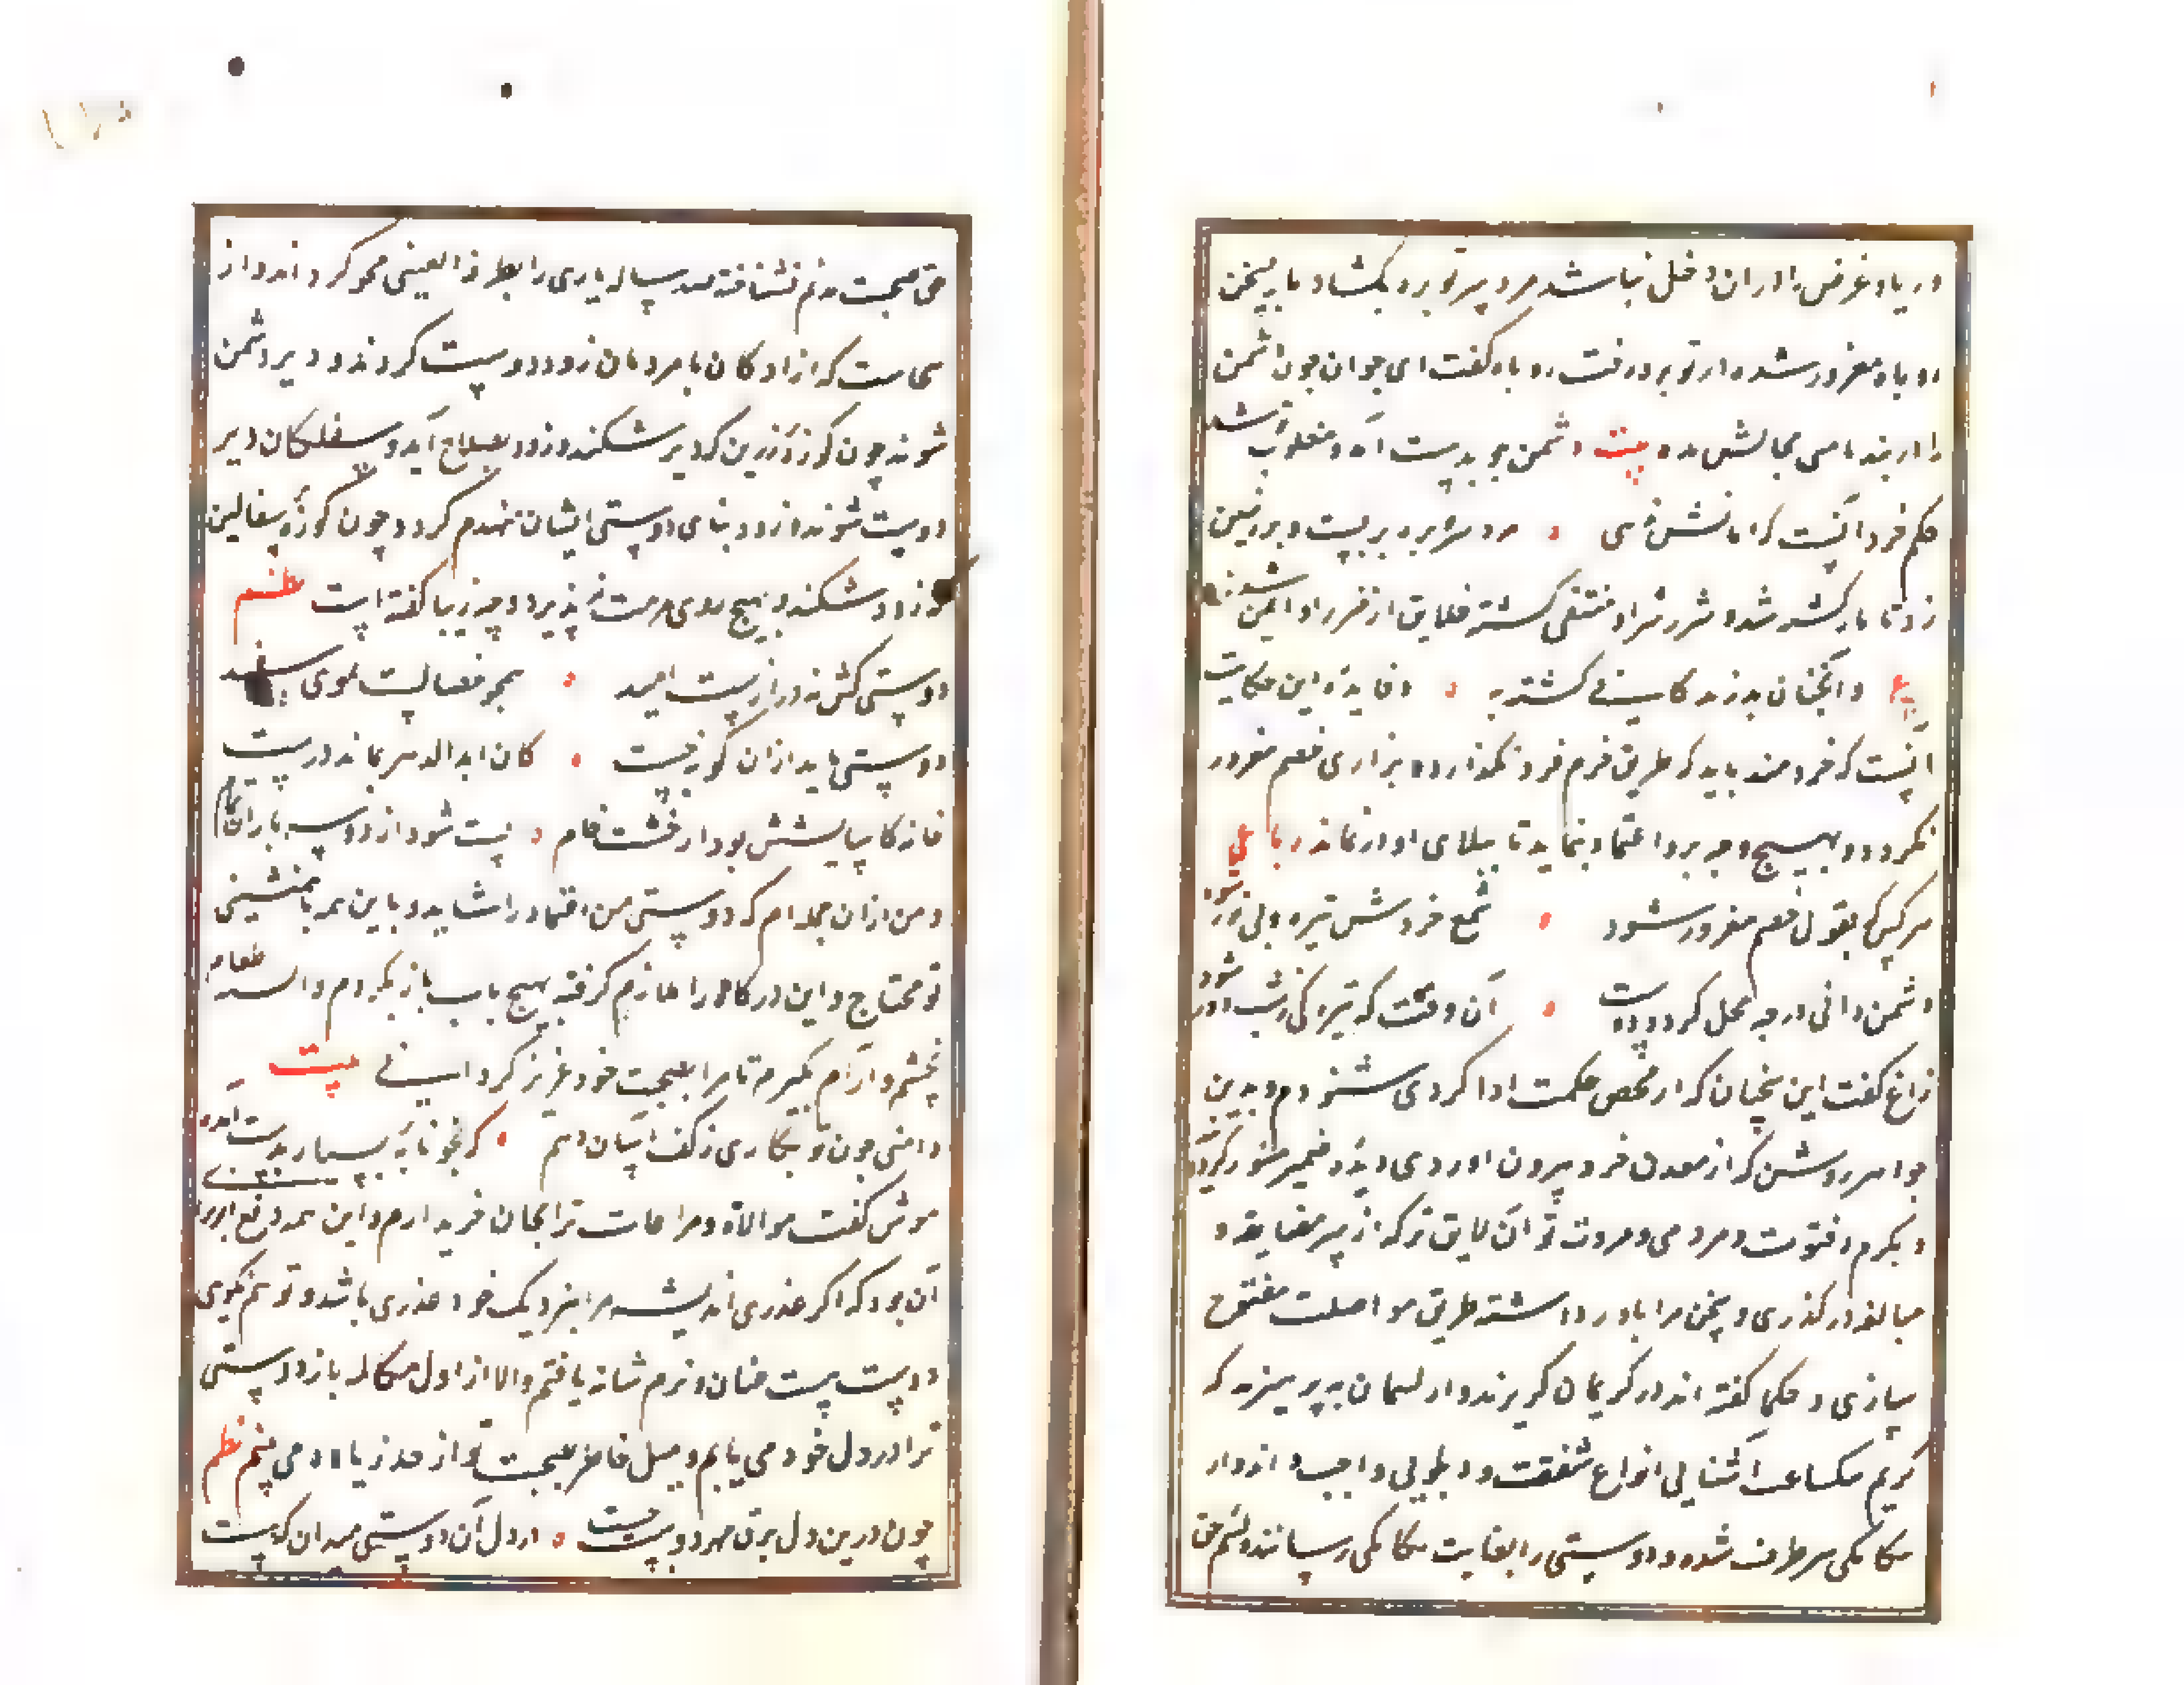 و ریا و غرض را در ان دخل نباشد مرد سر توبره بکشاد مار بسخن
روباه مغرور شده در توبره رفت روباه گفت ای جوان چون دشمن
را در بند یافتی مجالش مده بیت دشمن چو بدست آمد و مغلوب تو شد
حکم خرد آنست که امانش ندهی • مرد سر توبره بر بست و بر زمین
زد تا مار کشته شد و شرر شر او منتفی گشته خلایق از ضرر او ایمن شدند
ع وانچنان بد زندکانی کشته به • و فایده این حکایت
آنست که خردمند باید که طریق حزم فرو نگذارد و بزاری خصم مغرور
نگردد و بهیچ وجه برو اعتماد ننماید تا ببلای او در نماند رباعی
هر کس که بقول خصم مغرور شود • شمع خردش تیره و بی نور شود
دشمن دانی در چه محل گردد دوست • آن وقت که تیرگی ز شب دور شود
زاغ گفت این سخنان که از محض حکمت ادا کردی شنودم و بدین
جواهر روشن که از معدن خرد بیرون اوردی دیده ضمیر منور گردید
و بکرم و فتوت و مردمی و مروت تو آن لایق تر که از سر مضایقه و
مبالغه در گذری و سخن مرا باور داشته طریق مواصلت مفتوح
سازی و حکما گفته اند در کریمان گریزند و از لئیمان بپرهیزند که
کریم بیکساعت آشنایی انواع شفقت و دلجویی واجب داند و از
بیگانگی بر طرف شده و دوستی را بغایت یگانگی رساند و لئیم حق
حق صحبت هم نشناخته صد ساله یاری را بطرفة العینی محو گرداند و از
اینجاست که ازادگان با مردمان زود دوست گردند و دیر دشمن
شوند چون کوزه زرین که دیر شکند و زود بصلاح آید و سفلگان دیر
دوست شوند و زود بنای دوستی ایشان منهدم گردد چون کوزه سفالین
که زود شکند و بهیچ روی مرمت نپذیرد و چه زیبا گفته است نظم
دوستی کش نه در ازیست امید • همچو فصالیست بموی سفید
دوستی باید از ان گونه جست • کان ابد الدهر بماند درست
خانه کاسایشش بود از خشت خام • پست شود از دو سه باران تمام
و من از ان جمله ام که دوستی من اعتماد را شاید و با این همه بهمنشینی
تو محتاج و این درگاه را ملازم گرفته بهیچ باب باز نگردم و البته طعام
نچشم و آرام نگیرم تا مرا بصحبت خود عزیز گردانی بیت
دامنی چون تو نگاری ز کف آسان ندهم • که بخونابه بسیار بدست آمده
موش گفت موالاة و مراعات ترا بجان خریدارم و این همه دفع از برای
آن بود که اگر غدری اندیشی مرا بنزدیک خود عذری باشد و تو هم نگویی
دوست سست عنان و نرم شانه یافتم والا از اول مکالمه باز دوستی
ترا در دل خود می یابم و میل خاطر بصحبت تو از حد زیاده می بینم نظم
چون درین دل برق مهر دوست جست • در دل آن دوستی میدان که هست